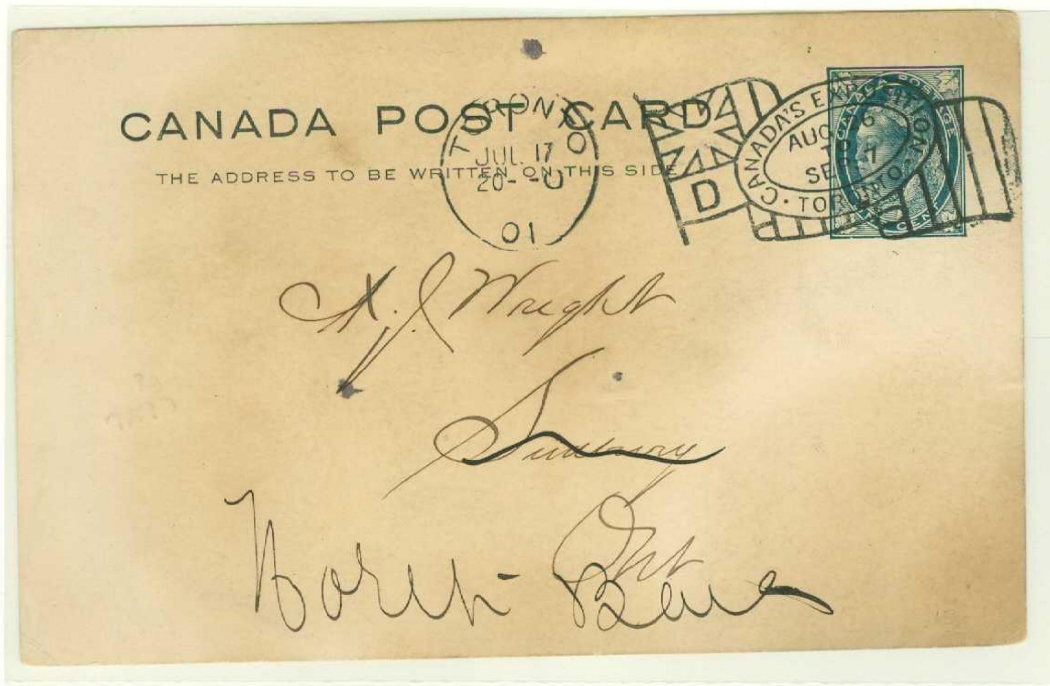 CANADA POST CARD
THE ADDRESS TO BE WRITTEN ON THIS SIDE
TORONTO
JUL 17
20- -0
01
D
CANADA'S EXPOSITION
AUG 26
TO
SEP 7
TORONTO
CANADA POSTAGE
CENT
A. J. Wright
Sudbury
Ont
North Bay